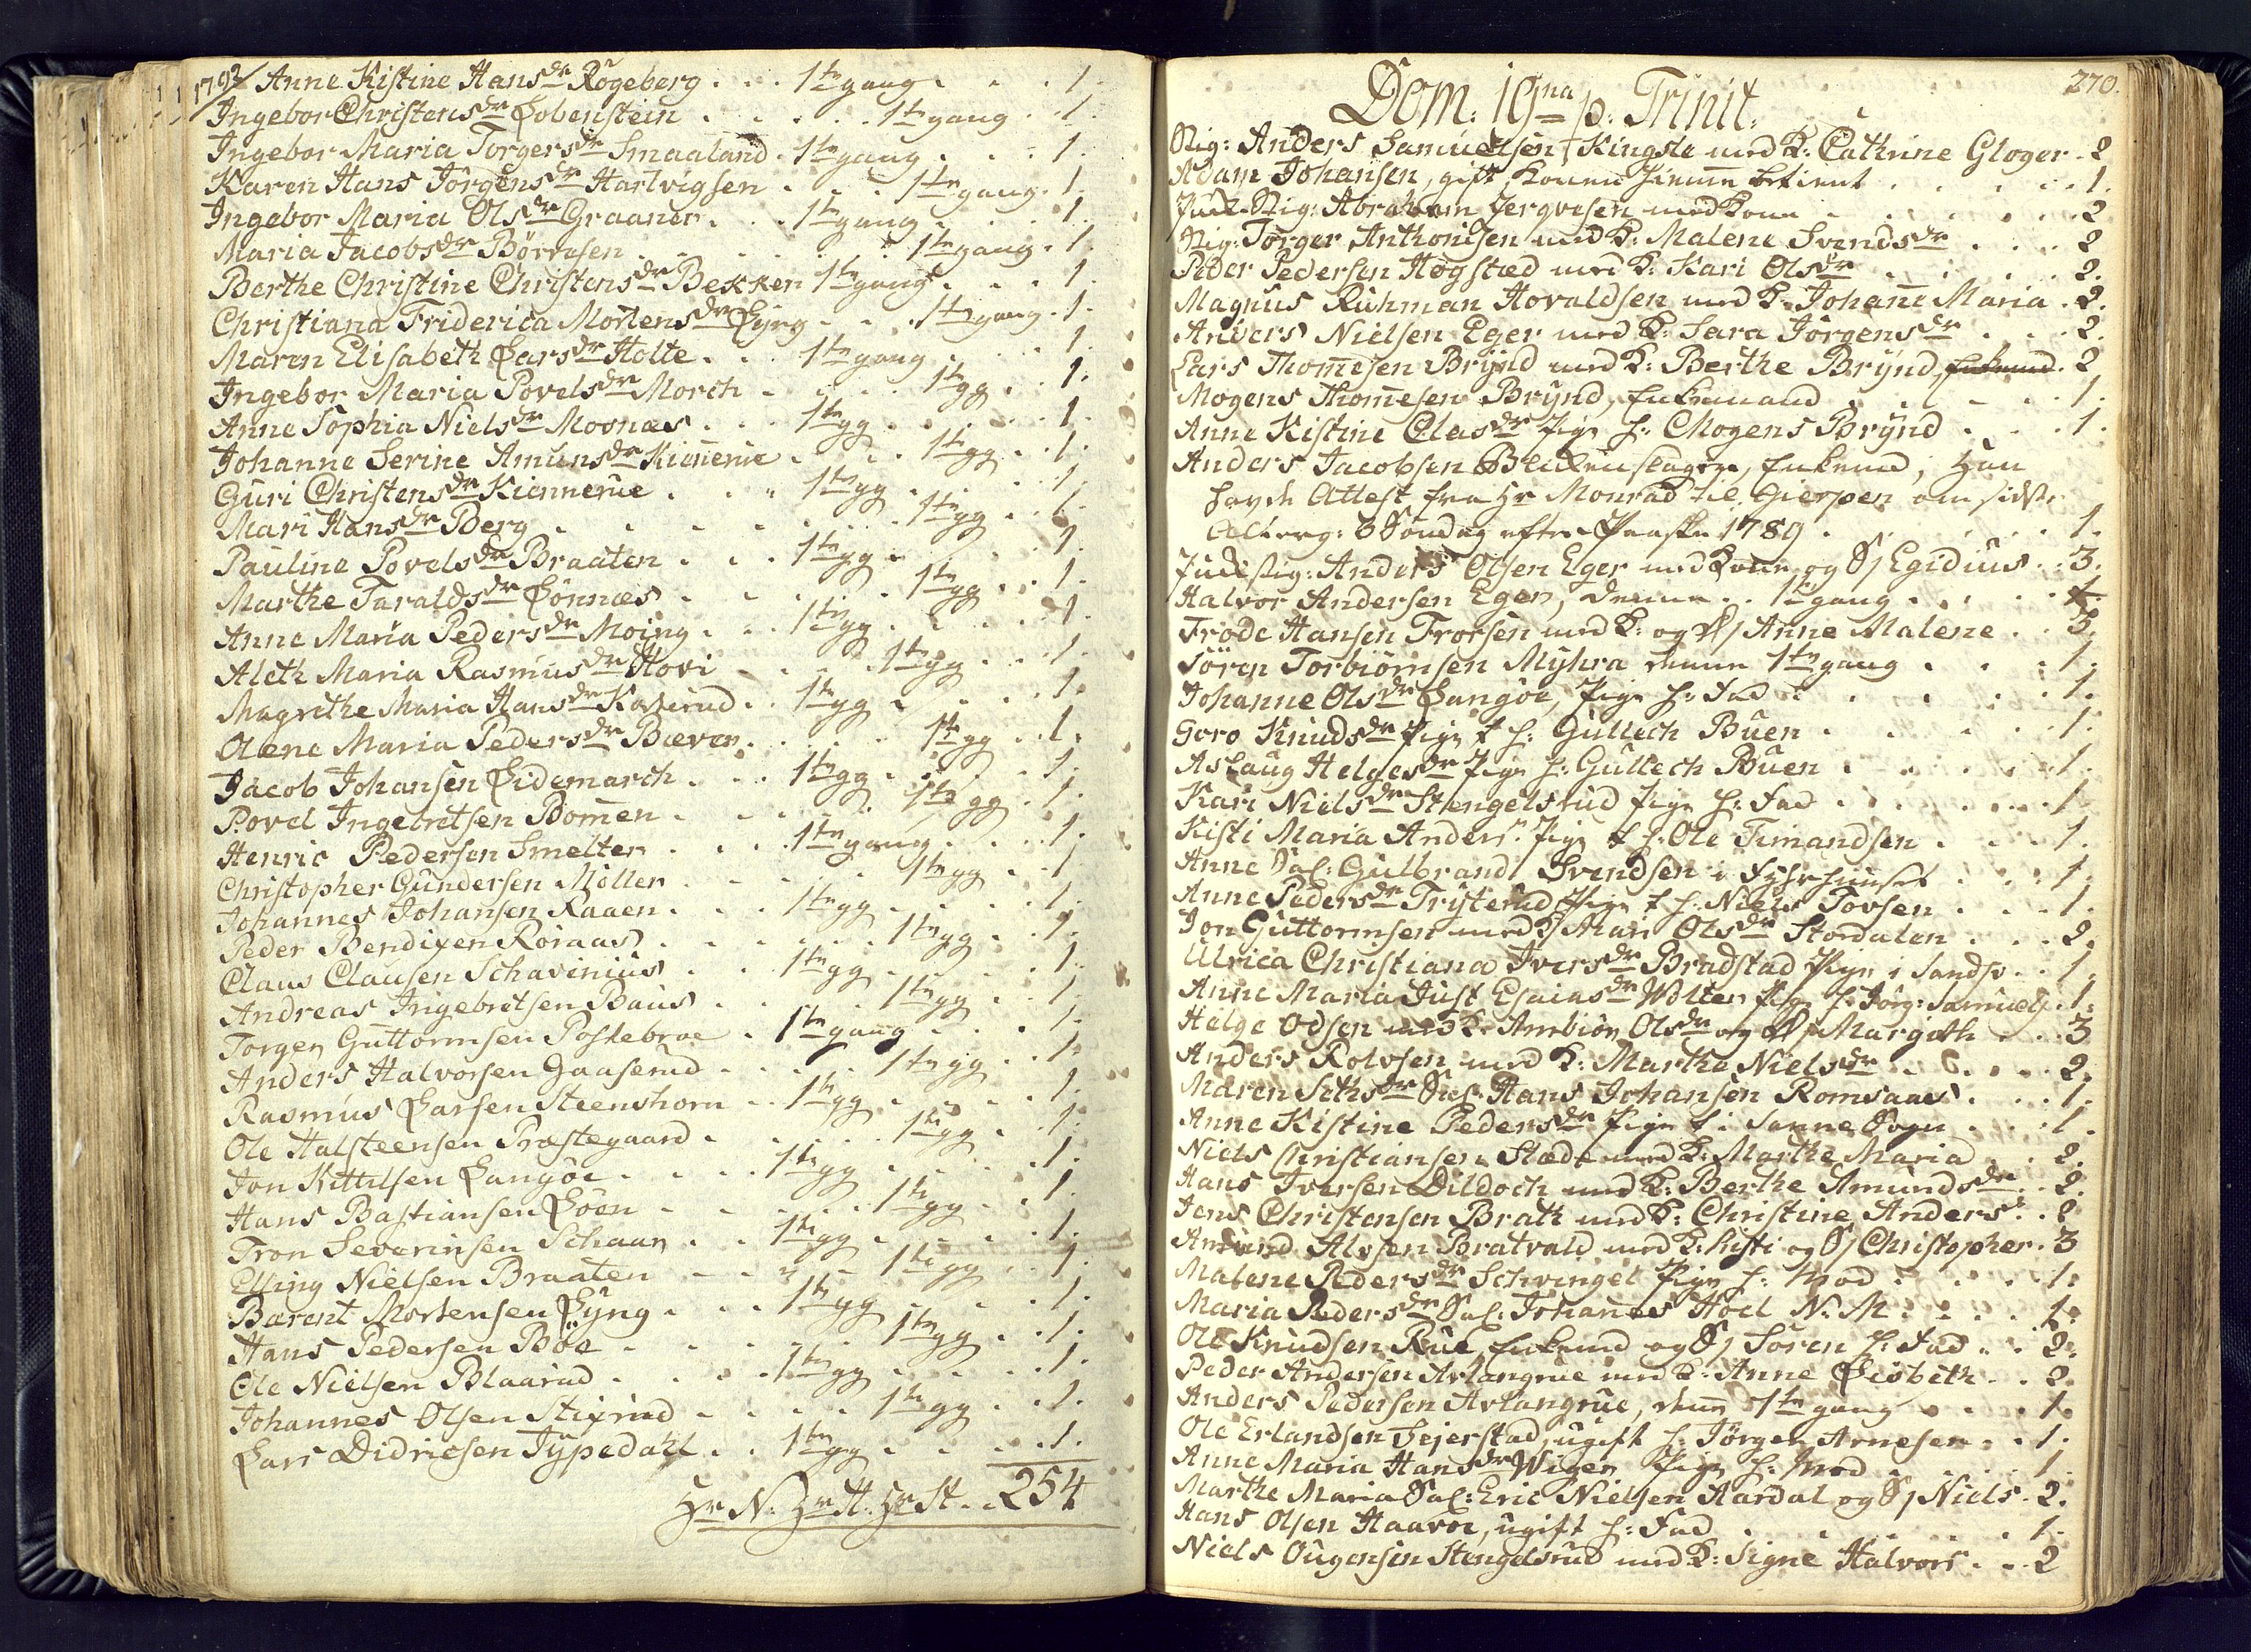 1792/ Anne Kistine Hansdr Rögeberg . . . 1te gang . . . 1.
Ingebor Christensdr Lobenstein . . . 1te gang . . 1.
Ingebor Maria Torgersdr Smaaland . 1te gang . . . 1.
Karen Hans Jörgensdr Hartvigsen . . . 1te gang . 1.
Ingebor Maria Olsdr Graaner . . . 1te gang . . . 1.
Maria Jacobsdr Börvesen . . . 1te gang . 1.
Berthe Christine Christensdr Bekken 1te gang . . . 1.
Christiana Friderica Mortensdr Lyng . . . 1te gang . 1.
Maren Elisabeth Larsdr Holte . . . 1te gang . . . 1.
Ingebor Maria Povelsdr Morch . . . 1te gg . . 1.
Anne Sophia Nielsdr Moonæs . . . 1te gg . . . 1.
Johanne Serine Amunsdr Kiennerue . . . 1te gg . . 1.
Guri Christensdr Kiennerue . . . 1te gg . . . 1.
Mari Hansdr Berg . . . 1te gg . . 1.
Pauline Povelsdr Braaten . . . 1te gg . . . 1.
Marthe Taraldsdr Lönnæs . . . 1te gg . . 1.
Anne Maria Pedersdr Moing . . . 1te gg . . . 1.
Aleth Maria Rasmusdr Hovi . . . 1te gg . . 1.
Magrethe Maria Hansdr Kaserud . . 1te gg . . . 1.
Olene Maria Pedersdr Bæver . . . 1te gg . . 1.
Jacob Johansen Lidemarch . . . 1te gg . . . 1.
Povel Ingebretsen Bommen . . . 1te gg . 1.
Henric Pedersen Smelter . . . 1te gang . . . 1.
Christopher Gundersen Möller . . . 1te gg . . 1
Johannes Johansen Raaen . . . 1te gg . . . 1.
Peder Bendixen Röraas . . . 1te gg . . 1.
Claus Clausen Schavinius . . . 1te gg . . . 1.
Andreas Ingebretsen Baus . . . 1te gg . . 1.
Torgen Guttormsen Postebroe . 1te gang . . . 1.
Anders Halvorsen Gaaserud . . . 1te gg . . 1.
Rasmus Larsen Steenshorn . . 1te gg . . . 1.
Ole Halsteensen Præstegaard . . . 1te gg . . 1.
Jon Kittelsen Langöe . . . 1te gg . . . 1.
Hans Bastiansen Löen . . . 1te gg . . 1.
Tron Severinsen Schaan . . 1te gg . . . 1.
Elling Nielsen Braaten . . . 1te gg . . 1.
Barent Mortensen Lyng . . . 1te gg . . . 1.
Hans Pedersen Böe . . . 1te gg . . 1.
Ole Nielsen Blaarud . . . 1te gg . . . 1.
Johannes Olsen Stixrud . . . 1te gg . . . 1.
Lars Didricsen Typedahl . . 1te gg . . . 1.
Hr N. Hr H. Hr St. . . 254
270.
Dom: 19na p. Trinit:
Stig: Anders Samuelsen Kingste med K: Cathrine Gloger . 2
Adam Johansen, gift, Konen hiemme betient . . . 1.
Jud. Stig: Abraham Jerqvesen med Kone . . . 2
Stig: Torger Anthonisen med K: Malene Svendsdr . . . 2
Peder Pedersen Högstæd med K: Kari Olsdr . . . 2.
Magnus Ruhman Hovaldsen med K: Johanne Maria . 2.
Anders Nielsen Eger med K: Sara Jörgensdr . . . 2.
Lars Thomesen Brynd med K: Berthe Brynd, . 2
Mogens Thomesen Brynd, Enkemand . . . 1.
Anne Kistine Olasdr Pige h: Mogens Brynd . . . 1.
Anders Jacobsen Blikkenslager, Enkemd, Han
havde Attest fra Hr Monrad til Gierpen om sidste
Alterg: 3 Söndag efter Paaske 1789 . . . 1.
Jud. Stig: Anders Olsen Eger med Kone og S/ Egidius . . 3.
Halvor Andersen Eger, denne . . 1te gang . . . 1.
Frode Hansen Frorsen med K: og D/ Anne Malene . . 3.
Sören Torbiörnsen Myhra denne 1te gang . . . 1.
Johanne Olsdr Langöe, Pige h: Fad . . . 1.
Goro Knudsdr Pige t h: Gullech Buen . . . 1.
Aslaug Helgesdr Pige h: Gullech Buen . . . 1.
Kari Nielsdr Stengelsrud Pige h: Fad . . . 1
Kisti Maria Anders: Pige t h: Ole Timandsen . . . 1.
Anne Sal: Gulbrand Svendsen i Fyhrhuuset . . . 1.
Anne Pedersdr Trysterud Pige t h: Niels Tovsen . . . 1.
Jon Guttormsen med K/ Mari Olsdr Stordalen . . . 2.
Ulrica Christiana Iversdr Bradstad Pige i Sandsv . . 1.
Anne Maria Just Esaiasdr Wolter Pige h: Jörg: Samuels . 1.
Helge Odsen med K: Ambiör Olsdr og D/ Margith . . . 3
Anders Rolvsen med K: Marthe Nielsdr . . . 2.
Maren Sethsdr Sal: Hans Johansen Romsaas . . . 1.
Anne Kistine Pedersdr Pige t i Sanne Sogn . . . 1.
Niels Christiansen Stæde med K: Marthe Maria . . 2.
Hans Iversen Dildoch med K: Berthe Amundsdr . . 2.
Jens Christensen Brath med K: Christine Anders: . 2
Amund Alvsen Bratvald med K: Kisti og S/ Christopher . 3
Malene Pedersdr Schvingel Pige h: Mod . . . 1.
Maria Pedersdr Sal: Johannes Höel N. M. . . . 1.
Ole Knudsen Rue, Enkemd og S/ Sören h: Fad . . 2.
Peder Andersen Avlangrue med K: Anne Lisbeth . . 2.
Anders Pedersen Avlangrue, denne 1te gang . . . 1.
Ole Erlandsen Sejerstad, ugift h: Jörgen Arnesen . . 1.
Anne Maria Hansdr Wiger Pige h: Mod . . . 1.
Marthe Maria Sal: Eric Nielsen Aardal og S/ Niels . 2.
Hans Olsen Haavoe, ugift h: Fad . . . 1.
Niels Ougensen Stengelsrud med K: Signe Halvors . . 2